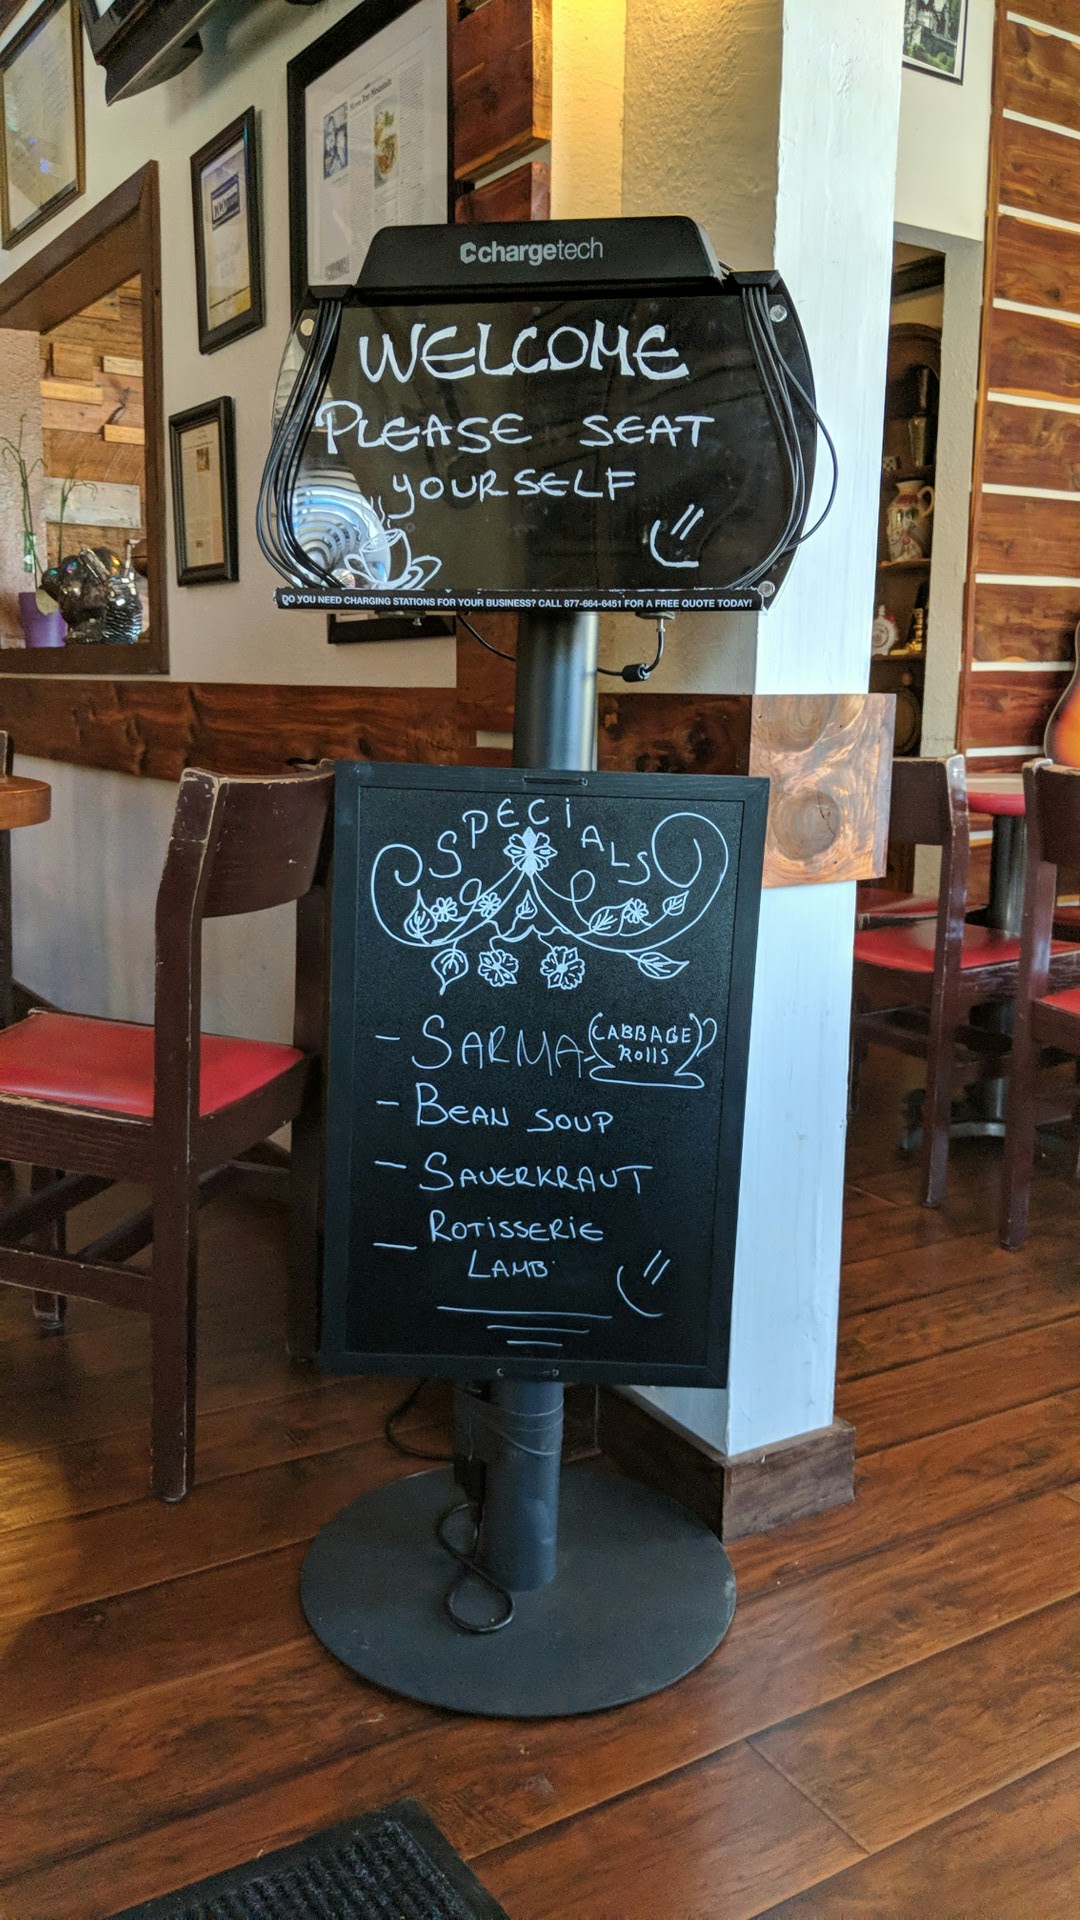 chargetech
WELCOME
PLEASE SEAT
YOURSELF
DO YOU NEED CHARGING STATIONS FOR YOUR BUSINESS? CALL 877-664-6451 FOR A FREE QUOTE TODAY!
SPECiALS
- SARMA (CABBAGE
Rolls)
- BEAN SOUP
- SAUERKRAUT
- ROTiSSERiE
LAMB